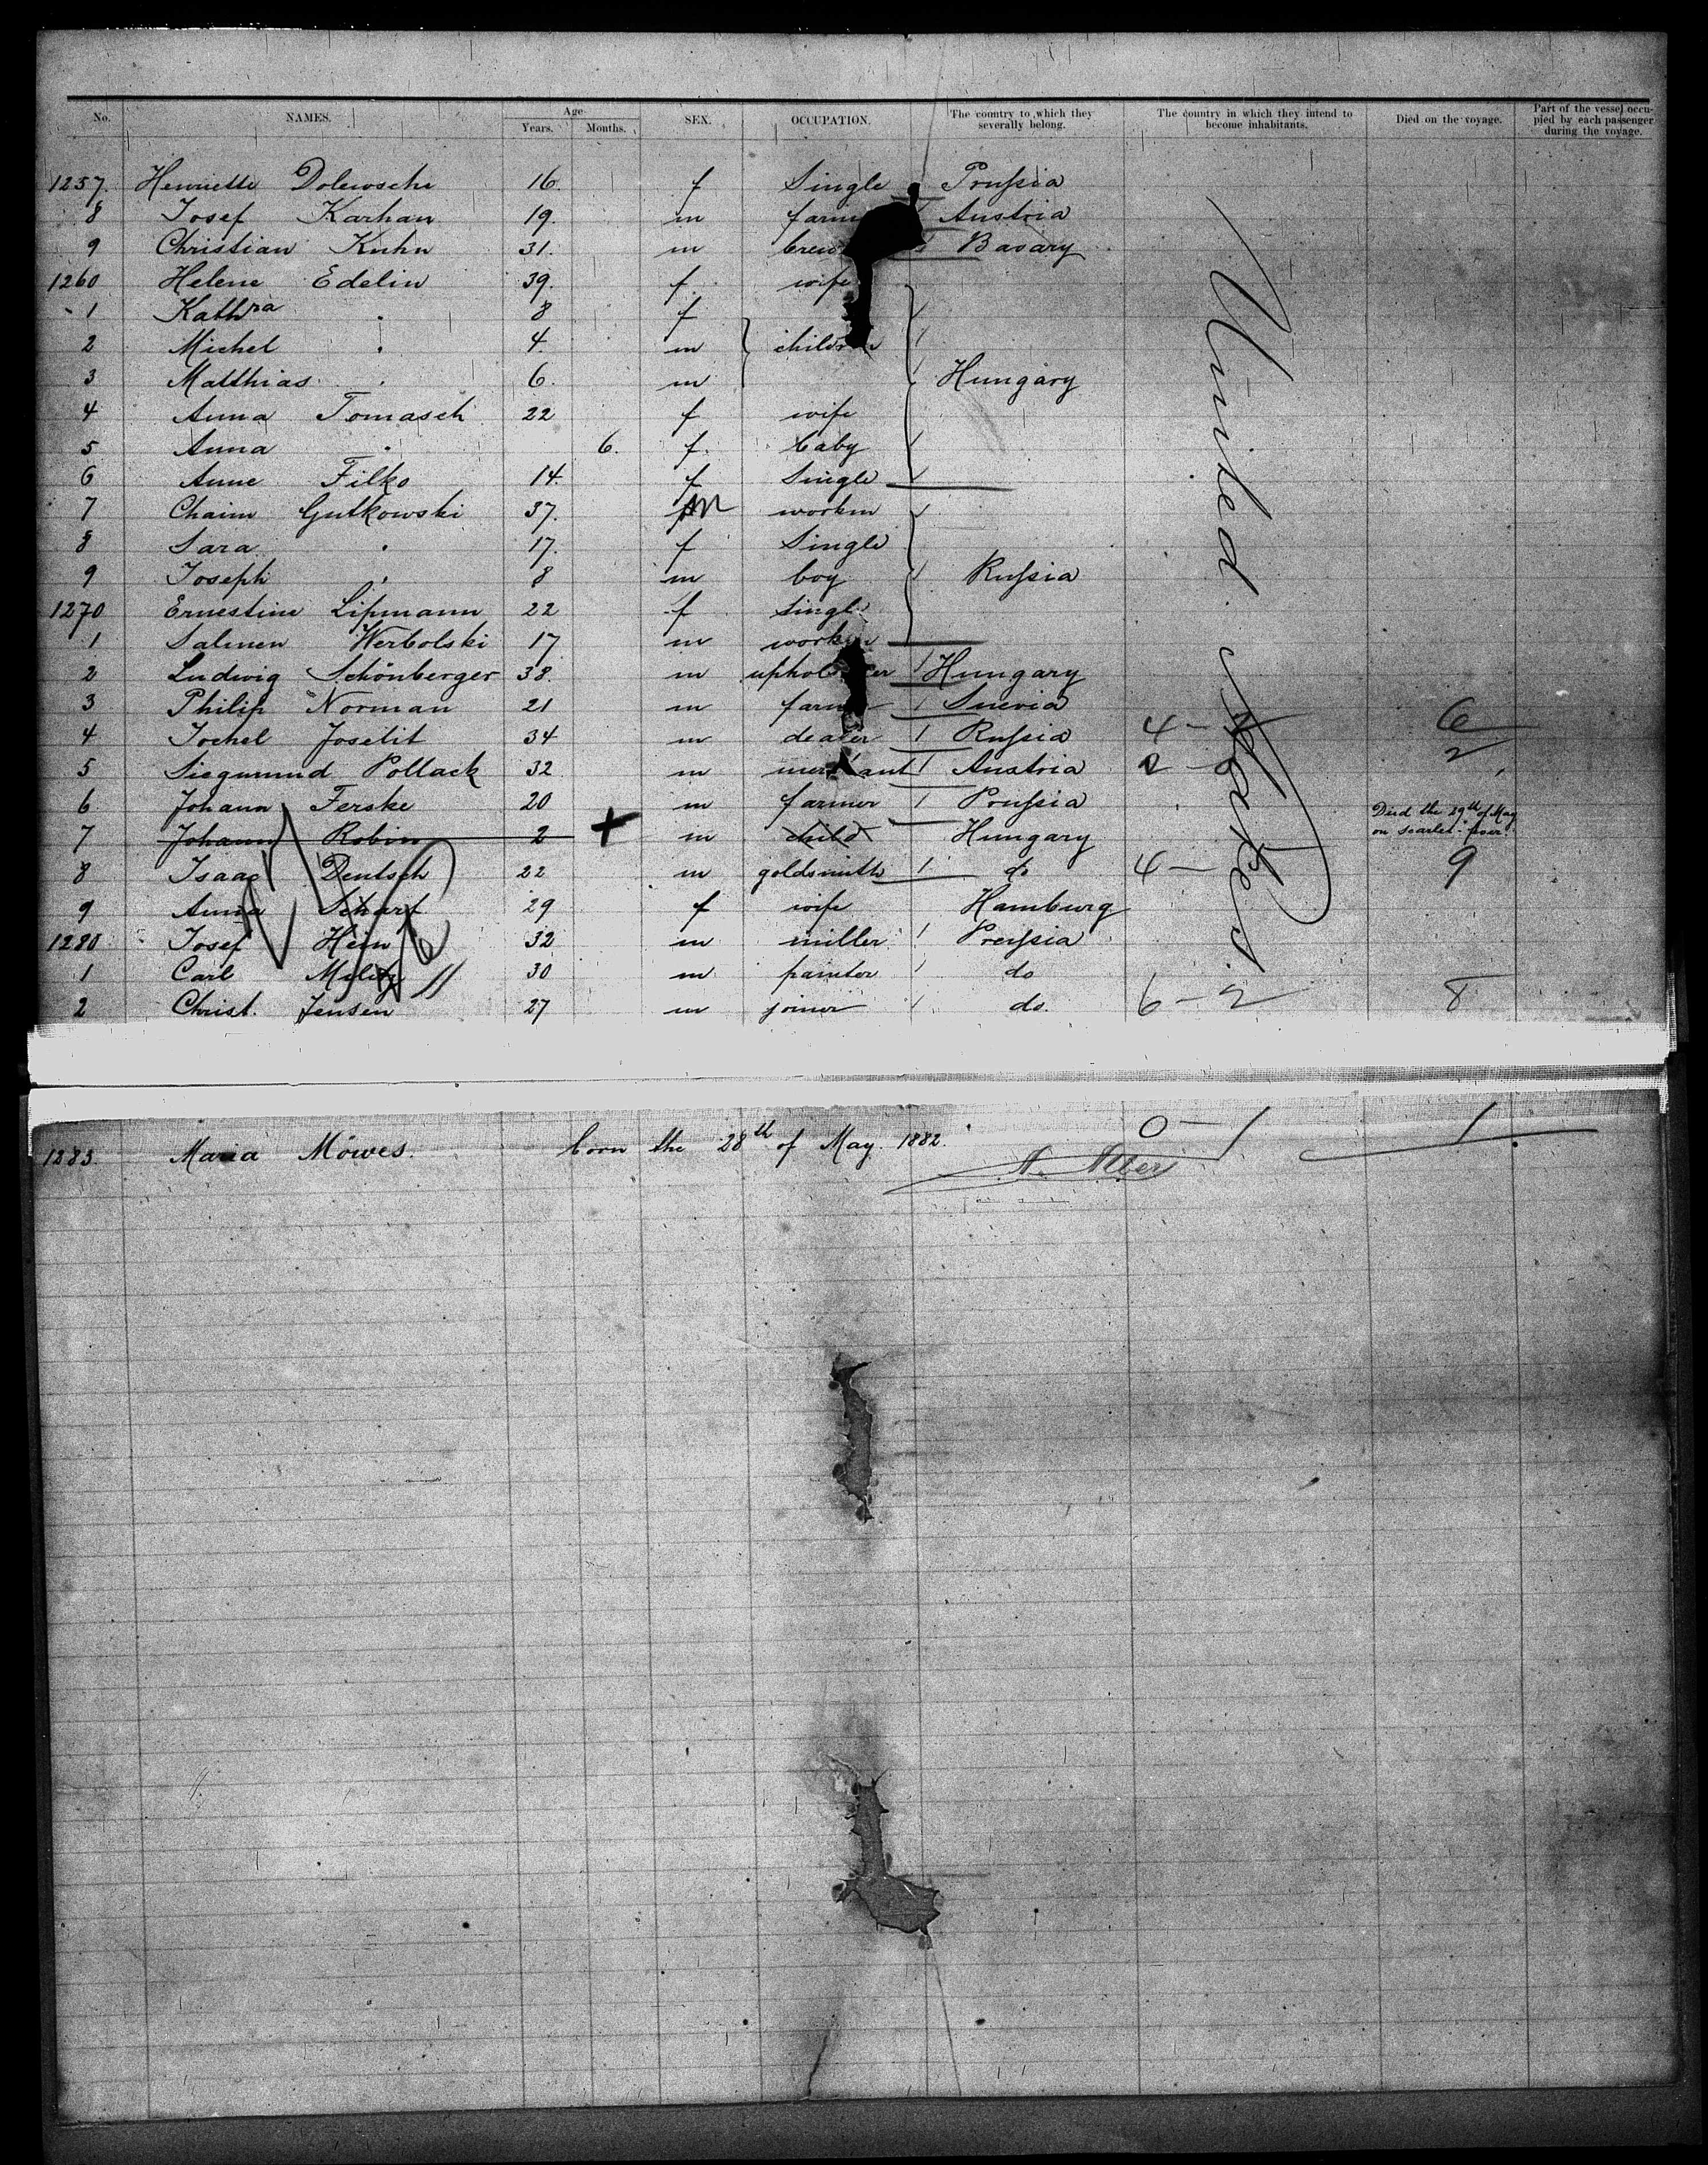 No. NAMES. Age Years. Months. SEX. OCCUPATION. The country to which they severally belong. The country in which they intend to become inhabitants. Died on the voyage. Part of the vessel occupied by each passenger during the voyage.
1257. Henriette 16. f Single Prußia
8 Josef Karhan 19. m Austria
9 Christian Kuhn 31. m Bavary
1260 Helene Edelin 39. f. wife
1 Kathra " 8 f
2 Michel " 4. m children
3 Matthias " 6. m Hungary
4 Anna Tomasch 22 f wife
5 Anna " 6. f. baby
6 Anne Filko 14. f Single
7 Chaim Gutkowski 37. m workm
8 Sara " 17. f Single
9 Joseph " 8 m boy Rußia
1270 Ernestine Lipmann 22 f single
1 Salmen Werbolski 17 m
2 Ludwig Schönberger 38. m upholsterer Hungary
3 Philip Norman 21 m farmer Suevia
4 Jochel Joselit 34 m dealer Rußia 4 – 2 6
5 Siegmund Pollack 32 m merchant Austria 2 – 0 2
6 Johann Ferske 20 m farmer Prußia
7 Johann Robin 2 + m child Hungary Died the 29th of May on scarlet-fever.
8 Isaac Deutsch 22 m goldsmith do 4 – 9
9 Anna Scharf 29 f wife Hamburg
1280 Josef Hein 32 m miller Preußia
1 Carl 30 m painter do
2 Christ. Jensen 27 m joiner do. 6 – 2 8
United States.
1283 Maria Möwes. born the 28th of May 1882. 0 – 1 1